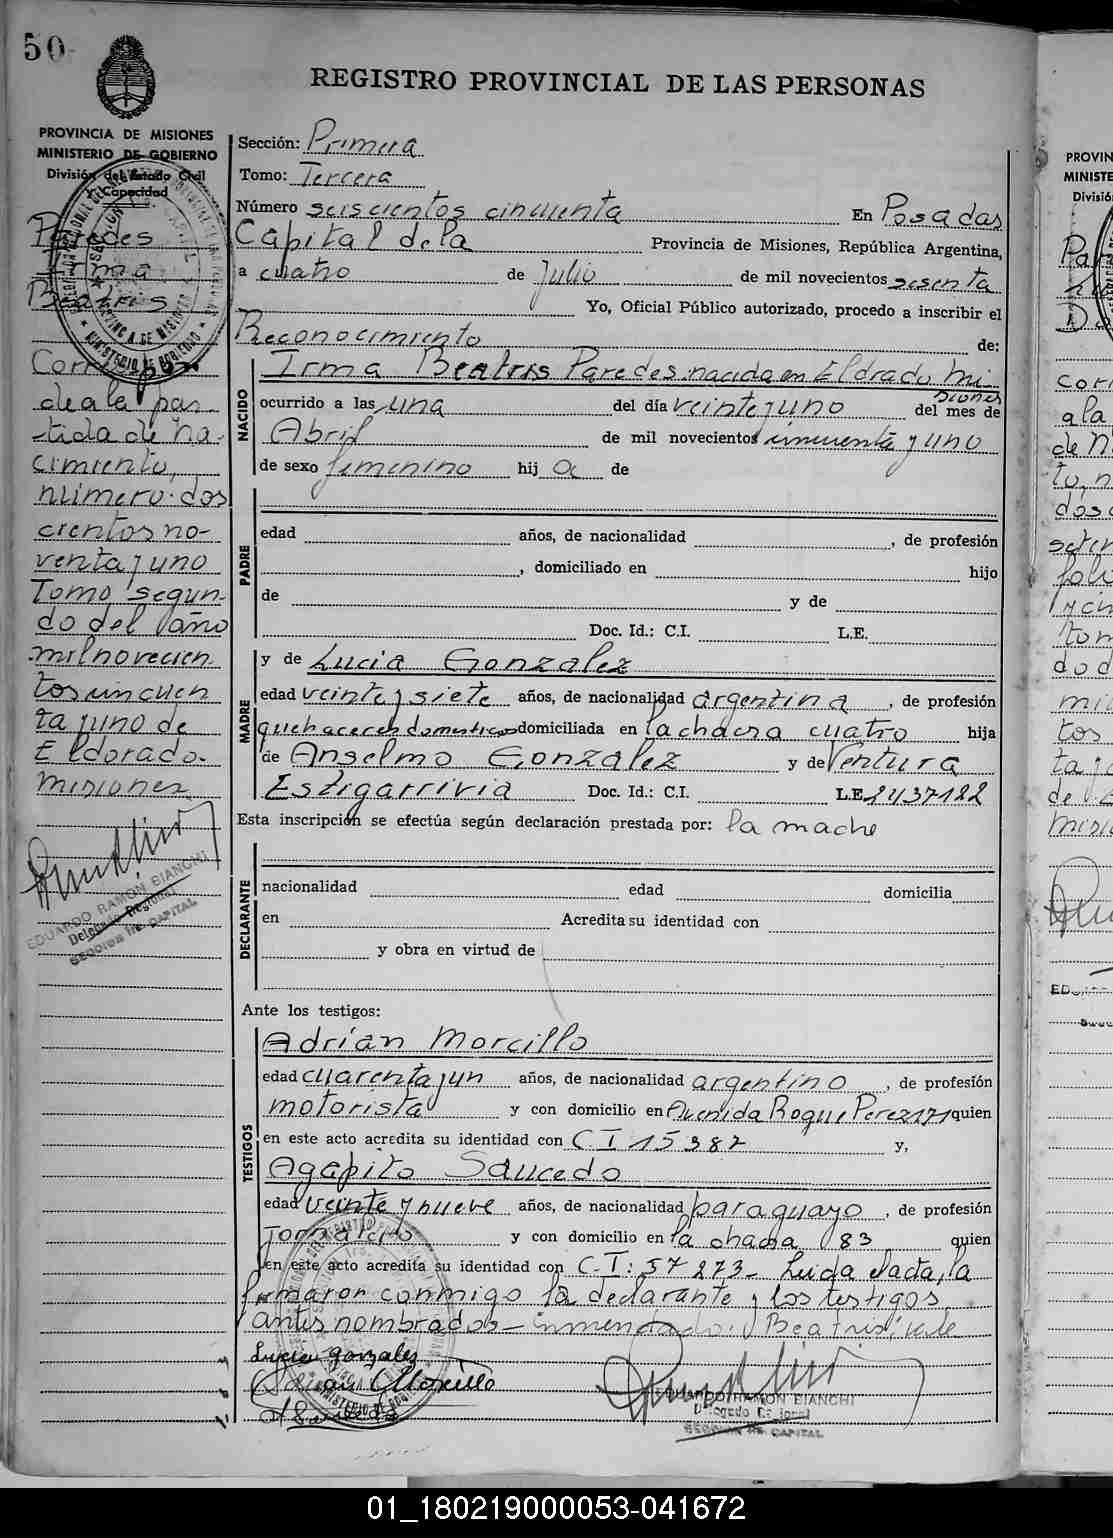 50
REGISTRO PROVINCIAL DE LAS PERSONAS
PROVINCIA DE MISIONES
MINISTERIO DE GOBIERNO
División del Estado Civil
y Capacidad
Paredes
Irma
Beatris
Corres pon
de a la par
tida de na-
cimiento,
número dos
cientos no-
venta y uno
Tomo segun-
do del año
mil novecien
tos cincuen
ta y uno de
Eldorado.
misiones
EDUARDO RAMON BIANCHI
Delegado Regional
SECCION 1ra. CAPITAL
Sección: Primera
Tomo: Tercera
Número seiscientos cincuenta En Posadas
Capital de la Provincia de Misiones, República Argentina,
a cuatro de Julio de mil novecientos sesenta
Yo, Oficial Público autorizado, procedo a inscribir el
Reconocimiento de:
NACIDO
Irma Beatris Paredes nacida en Eldrado Mi-
siones
ocurrido a las una del día veinte y uno del mes de
Abril de mil novecientos cincuenta y uno
de sexo femenino hij a de
PADRE
edad años, de nacionalidad , de profesión
, domiciliado en hijo
de y de
Doc. Id.: C.I. L.E.
MADRE
y de Lucia Gonzalez
edad veinte y siete años, de nacionalidad argentina , de profesión
quehaceres domesticos domiciliada en la chacra cuatro hija
de Anselmo Gonzalez y de Ventura
Estigarrivia Doc. Id.: C.I. L.E. 2437122
Esta inscripción se efectúa según declaración prestada por: la madre
DECLARANTE
nacionalidad edad domicilia
en Acredita su identidad con
y obra en virtud de
Ante los testigos:
TESTIGOS
Adrián Morcillo
edad cuarenta y un años, de nacionalidad argentino , de profesión
motorista y con domicilio en Avenida Roque Perez 171 quien
en este acto acredita su identidad con C I 15387 y,
Agapito Saucedo
edad veinte y nueve años, de nacionalidad paraguayo , de profesión
Jornalero y con domicilio en la chacra 83 quien
en este acto acredita su identidad con C.I: 57273- Leida el acta, la
firmaron conmigo la declarante y los testigos
antes nombrados - enmendado: Beatris: vale
Lucia gonzalez
Adrian Morcillo
A Saucedo
EDUARDO RAMON BIANCHI
Delegado Regional
SECCION 1ra. CAPITAL
01_180219000053-041672